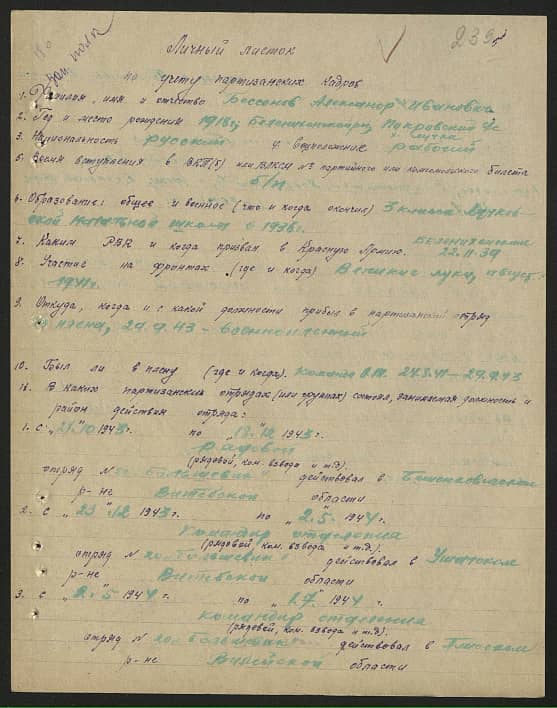 239
Личный листок
по учету партизанских кадров
1. Фамилия, имя и отчество Бессонов Александр Иванович
2. Год и место рождения 1918г, с/с
3. Национальность русский 4. Соцположение рабочий
5. Время вступления в ВКП(б) или ВЛКСМ № партийного или комсомольского билета
б/п
6. Образование: общее и военное (что и когда окончил) 3 класса
школа в 1936г.
7. Каким РВК и когда призван в Красную Армию.
22.11.39
8. Участие на фронтах, (где и когда) Великие луки, август
1941г.
9. Откуда, когда и с какой должности прибыл в партизанский отряд
плена, 29.9.43 - военнопленный
10. Был ли в плену (где и когда). 24.8.41 — 29.9.43
11. В каких партизанских отрядах (или группах) состоял, занимаемая должность и
район действия отряда:
1. С " " 10 1943г. по " " 12 1943г.
рядовой
(рядовой, ком. взвода и т.д.)
отряд № действовал в
р-не Витебской области
2. С "23" 12 1943г. по "2" 5 1944г.
Командир отделения
(рядовой, ком. взвода и т.д.)
отряд № действовал в Ушатском
р-не Витебской области
3. С "2" 5 1944г. по 1944г.
командир отделения
(рядовой, ком. взвода и т.д.)
отряд № действовал в
р-не области